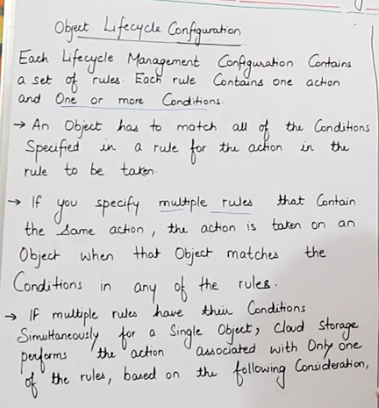 Object Lifecycle Configuration
Each Lifecycle Management Configuration Contains
a set of rules. Each rule Contains one action
and One or more Conditions.
→ An Object has to match all of the Conditions
Specified in a rule for the action in the
rule to be taken.
→ If you specify multiple rules that Contain
the Same action, the action is taken on an
Object when that Object matches the
Conditions in any of the rules.
→ If multiple rules have their Conditions
Simultaneously for a Single Object, Cloud Storage
performs the action associated with Only one
of the rules, based on the following Consideration,